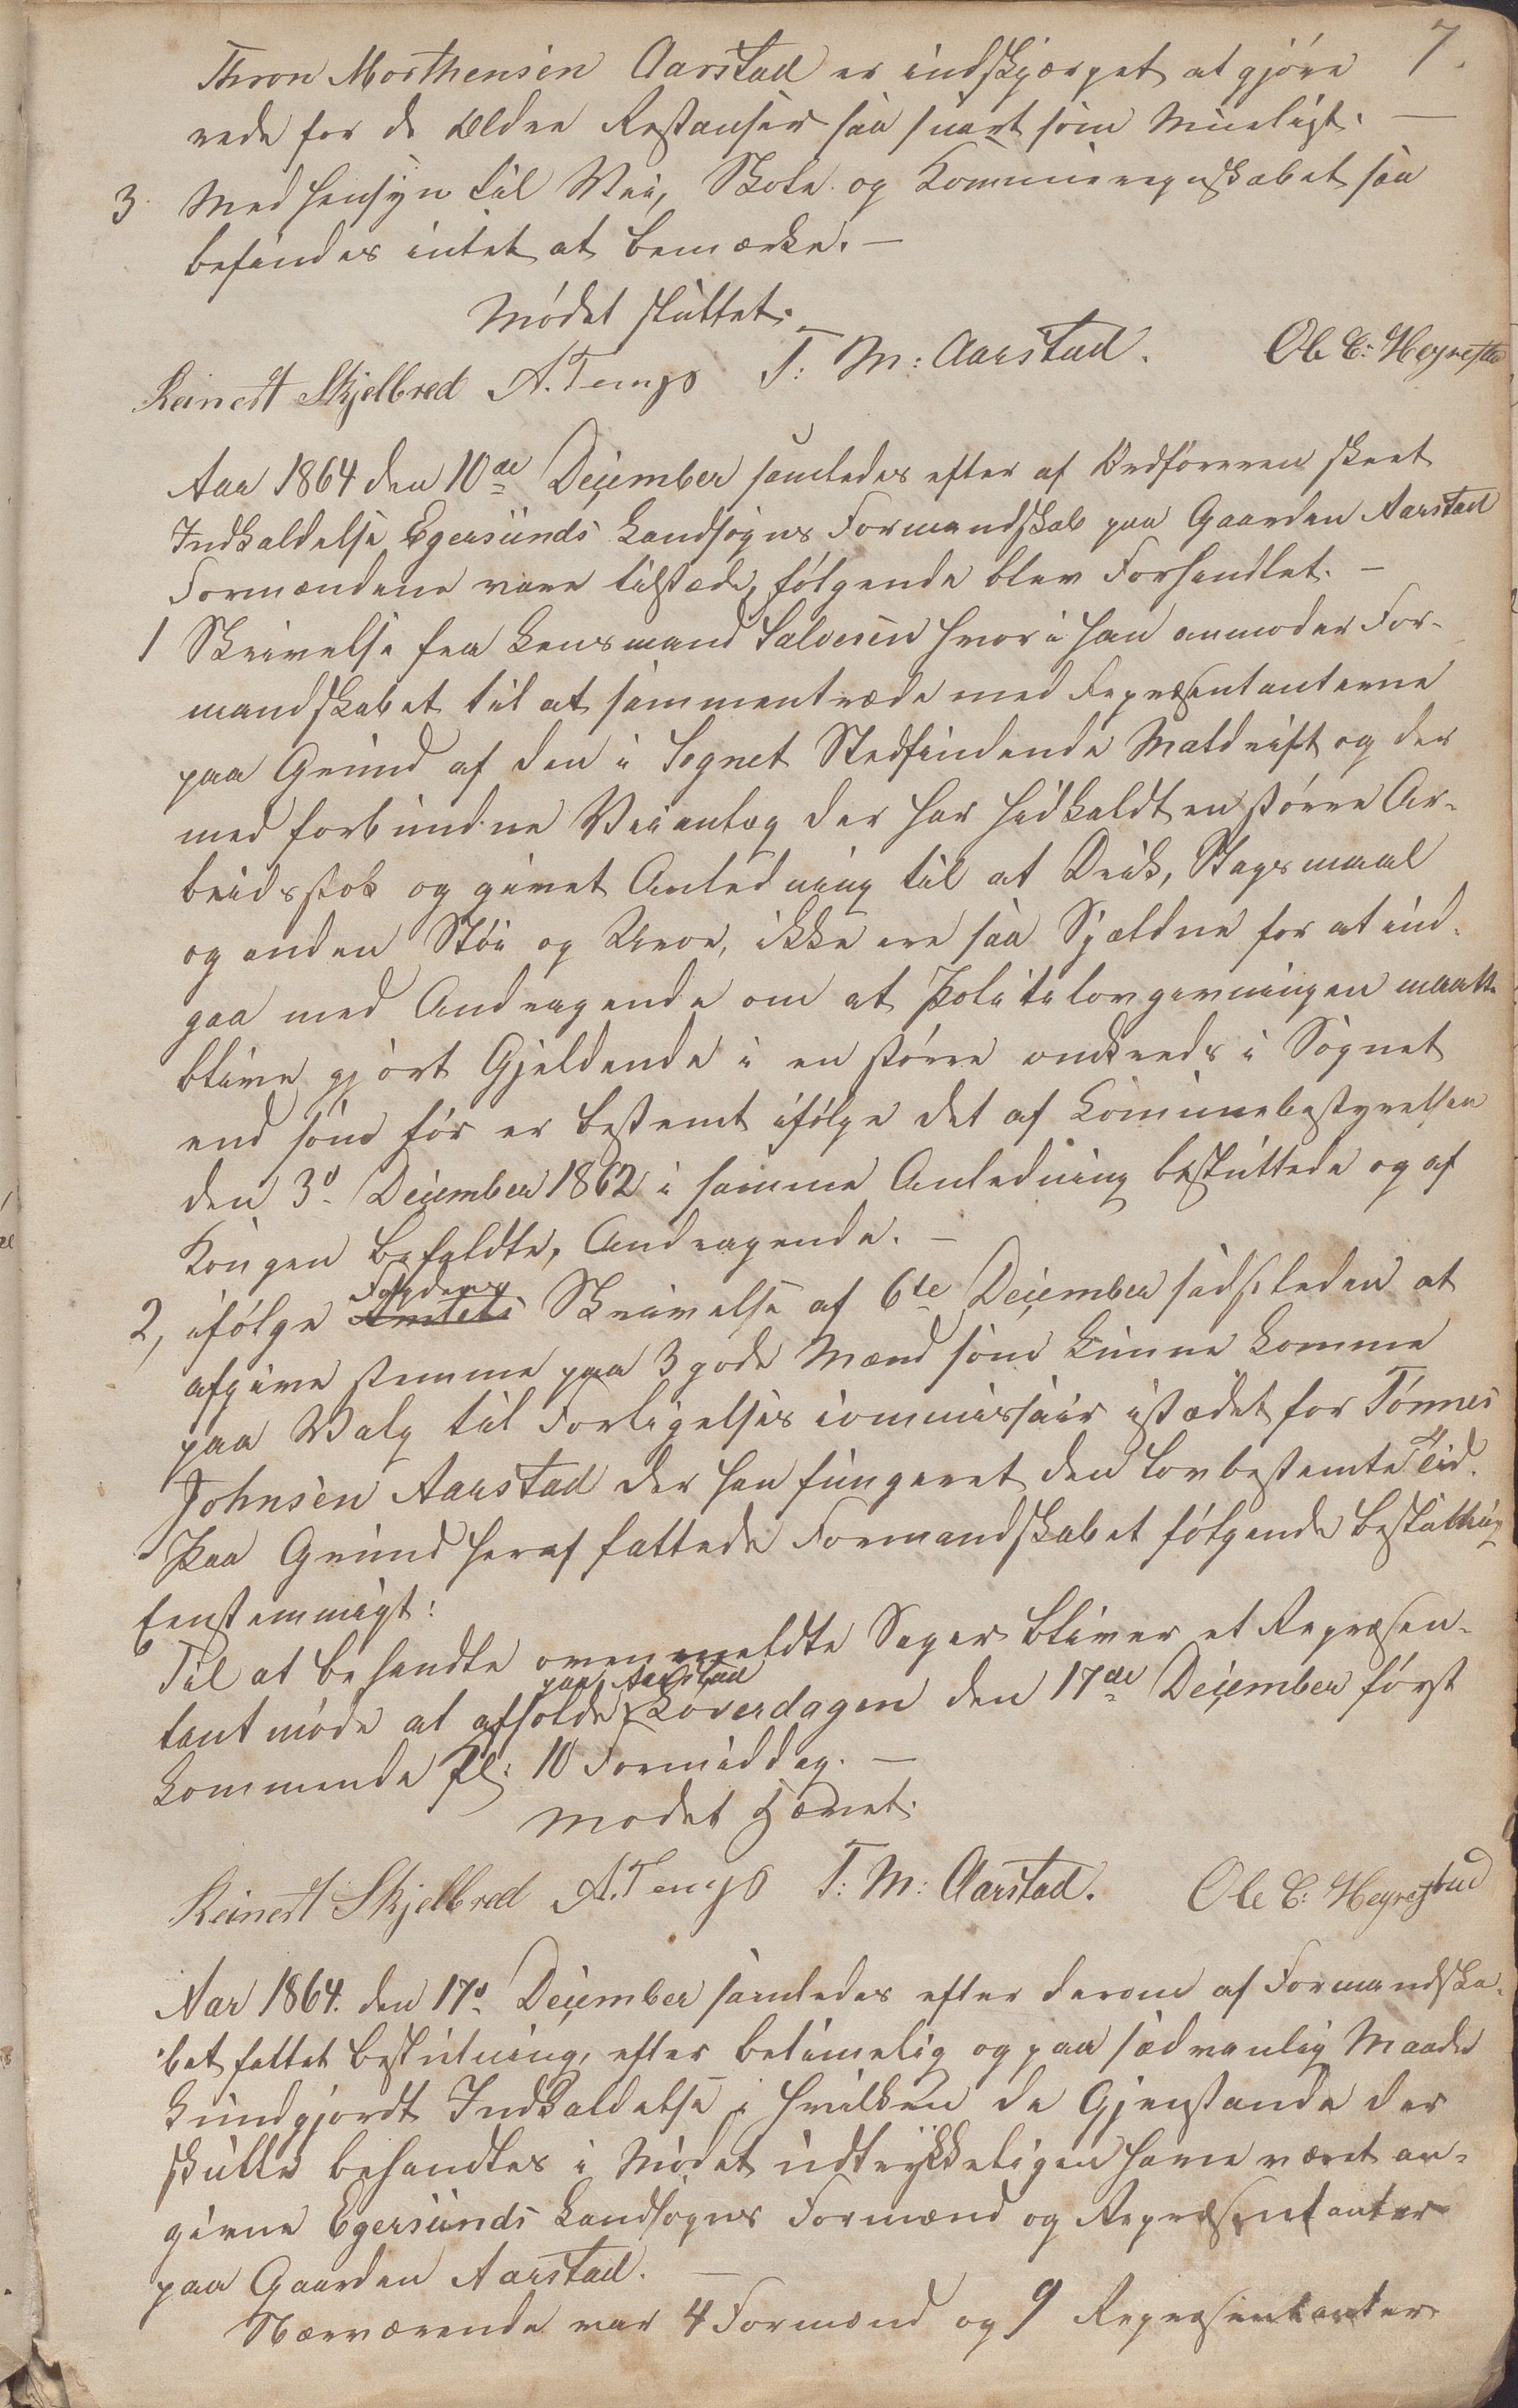 7.
Thron Morthensen Aarstad er indskjærpet at gjöre
rede for de ældre Restanser saa snart som Mueligt. —
3. Med Hensyn til Vei, Skole og Kommuneregnskabet saa
befindes intet at bemærke. —
Mödet sluttet.
Reinert Skjelbred A. Tengs T: M: Aarstad. Ole C: Hegrestad
Aar 1864 den 10de December samledes efter af Ordföreren skeet
Indkaldelse Egersunds Landsogns Formandskab paa Gaarden Aarstad
Formændene vare tilstæde, fölgende blev Forhandlet. —
1 Skrivelse fra Lensmand Salvesen hvori han anmoder For-
mandskabet til at sammentræde med Repræsentanterne
paa Grund af den i Sognet Stedfindende Maldrift og der
med forbundne Veianlæg der har hidkaldt en större Ar-
beidsstok og givet Anledning til at Drik, Slagsmaal
og anden Stöi og Uroe, ikke ere saa Sjældne for at ind-
gaa med Andragende om at Politilovgivningen maatte
blive gjort Gjeldende i en större omkreds i Sognet
end som för er bestemt ifölge det af Communebestyrelsen
den 3d December 1862 i samme Anledning besluttede og af
Kongen befaldte, Andragende. —
Fogdens
2, ifölge Amtets Skrivelse af 6te December sidstleden at
afgive stemme paa 3 gode Mænd som kunne komme
paa Valg til Forligelses commissair istædet for Tönnes
Johnsen Aarstad der har fungeret den lovbestemte Tid.
Paa Grund heraf fattede Formandskabet fölgende beslutning
Eenstemmigt:
Til at behandle ovenmeldte Sager bliver et Repræsen-
paa Aarstad
tantmöde at afholde Löverdagen den 17de December först
kommende Kl: 10 Formiddag. —
Modet Hævet.
Reinert Skjelbred A. Tengs T: M: Aarstad. Ole C: Hegrestad
Aar 1864. den 17d December samledes efter derom af Formandska-
bet fattet beslutning, efter betimelig og paa sædvanlig Maade
kundgjordt Indkaldelse i hvilken de Gjenstande der
skulle behandles i Mödet udtrykkeligen have været an-
givne Egersunds Landsogns Formænd og Repræsentanter
paa Gaarden Aarstad. —
Nærværende var 4 Formænd og 9 Repræsentanter